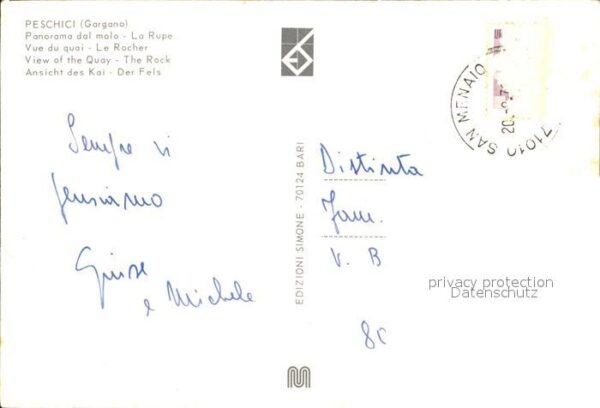 PESCHICI (Gargano)
Panorama dal molo - La Rupe
Vue du quai - Le Rocher
View of the Quay - The Rock
Ansicht des Kai - Der Fels
71010 SAN MENAIO
Sempre vi
pensiamo
e Michele
EDIZIONI SIMONE - 70124 BARI
Distinta
Fam.
V. B
80
privacy protection
Datenschutz